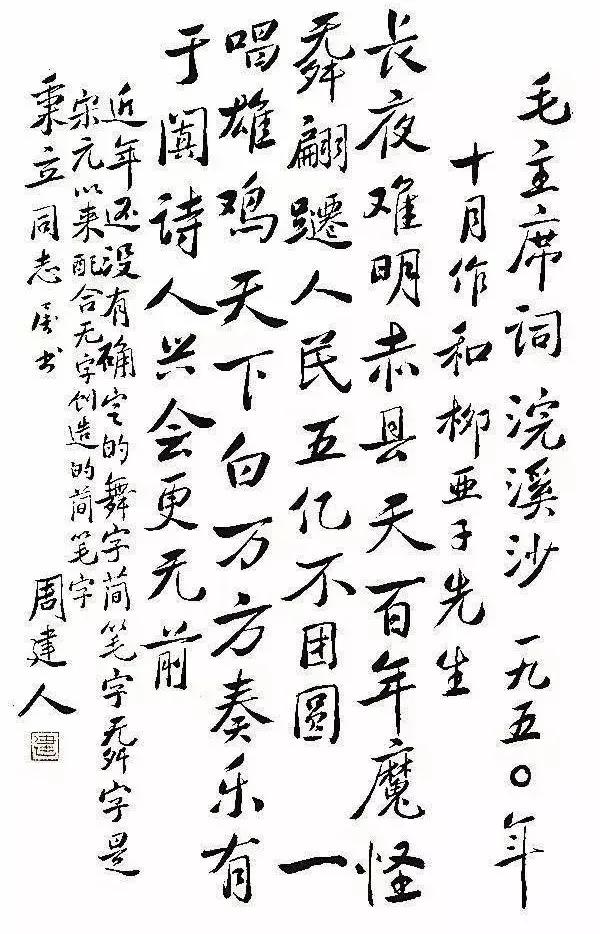 毛主席词浣溪沙 一九五〇年
十月作和柳亚子先生
长夜难明赤县天百年魔怪
⿱无舛翩躚人民五亿不团圆 一
唱雄鸡天下白万方奏乐有
于阗诗人兴会更无前
近年还没有确定的舞字简笔字⿱无舛字是
宋元以来配合无字创造的简笔字
秉立同志属书
周建人
建